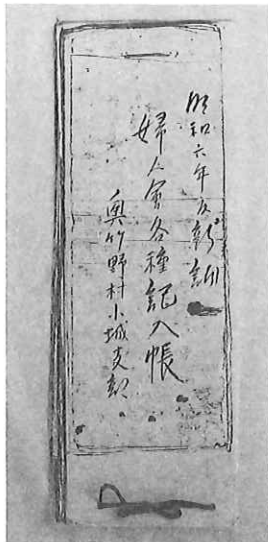 昭和六年度新調
婦人會各種記入帳
奥竹野村小城支部